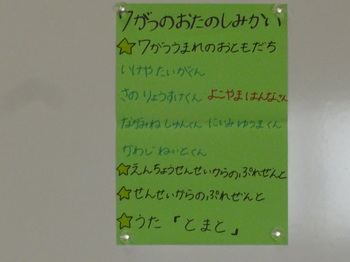 7がつのおたのしみかい
7がつうまれのおともだち
いけや たいがくん
さの りょうすけくん よこやま はんなさん
ながみね しゅんくん にいみ ゆうまくん
かわじ ねいとくん
えんちょうせんせいからのぷれぜんと
せんせいからのぷれぜんと
うた 「とまと」